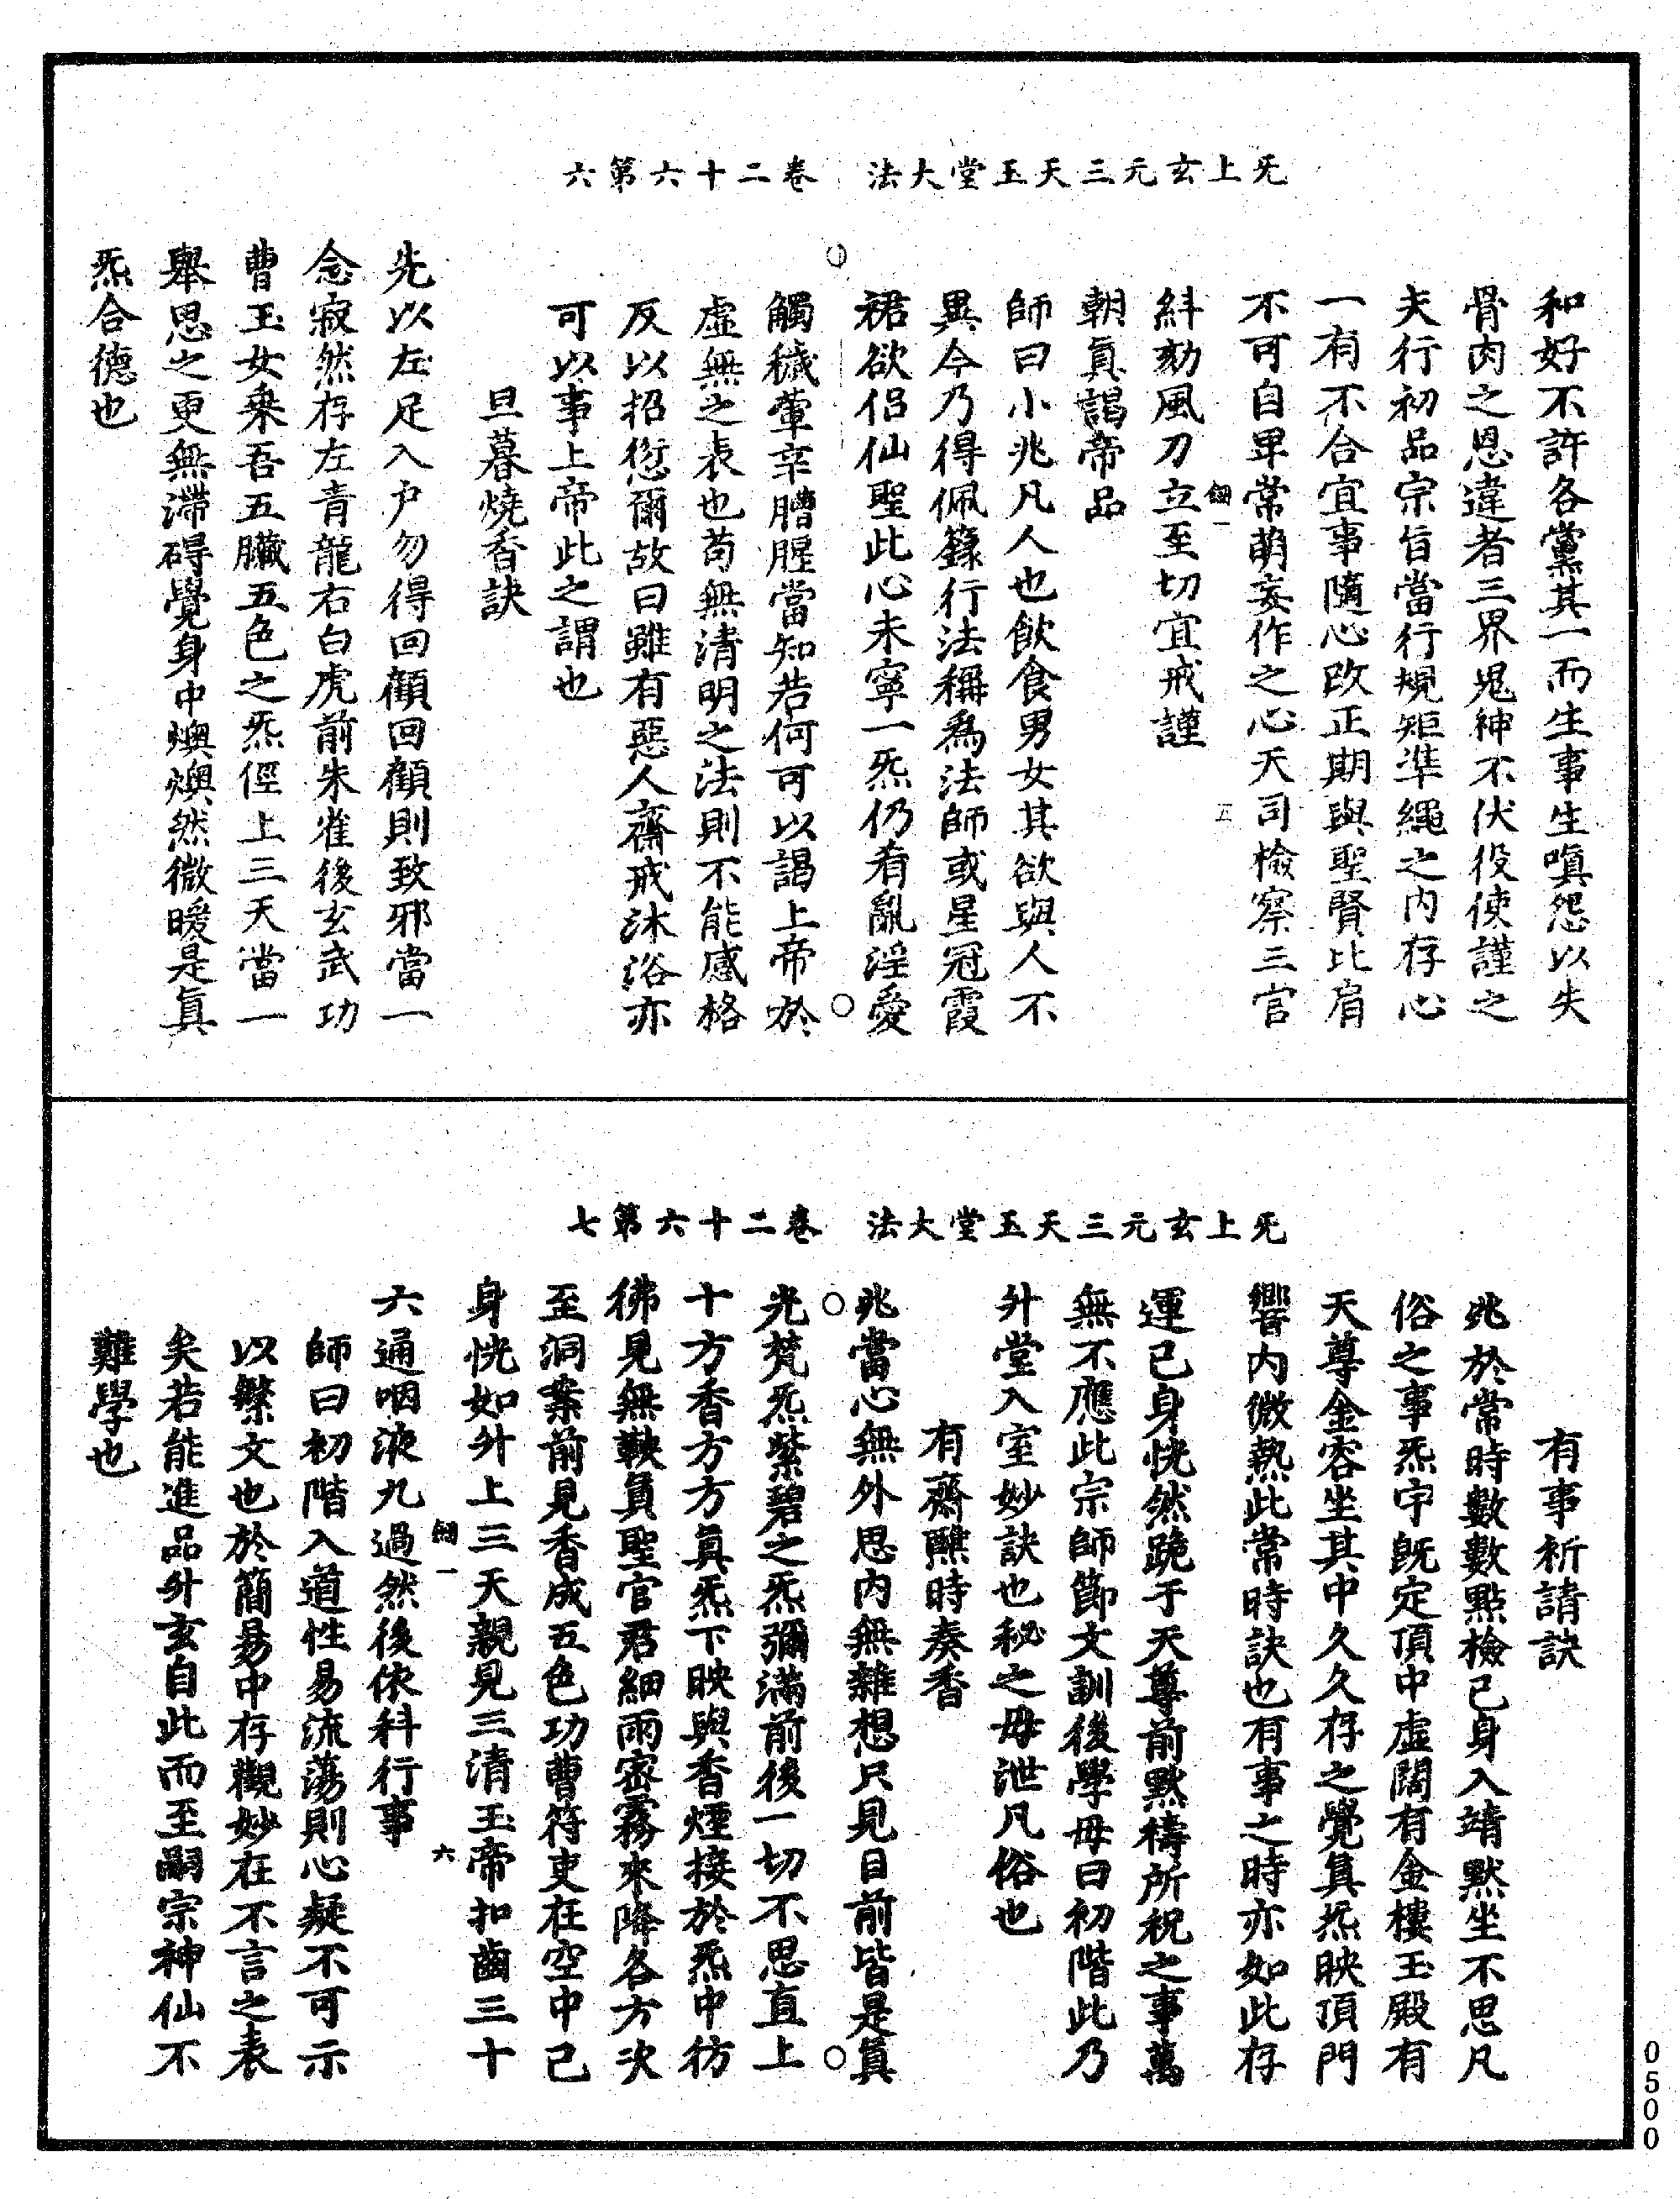 无上玄元三天玉堂大法　卷二十六第六
和好不許各黨其一而生事生嗔怨以失
骨肉之恩違者三界鬼神不伏役使謹之
夫行初品宗旨當行規矩準繩之內存心
一有不合宜事隨心改正期與聖賢比肩
不可自卑常萌妄作之心天司檢察三官
糾劾風刀立至切宜戒謹
朝真謁帝品
師曰小兆凡人也飲食男女其欲與人不
異今乃得佩籙行法稱為法師或星冠霞
裙欲侶仙聖此心未寧一炁仍肴亂淫愛
觸穢葷辛膻腥當知若何可以謁上帝於
虛無之表也苟無清明之法則不能感格
反以招愆爾故曰雖有惡人齋戒沐浴亦
可以事上帝此之謂也
旦暮燒香訣
先以左足入户勿得回顧回顧則致邪當一
念寂然存左青龍右白虎前朱雀後玄武功
曹玉女乘吾五臟五色之炁俓上三天當一
舉思之更無滯碍覺身中燠燠然微暖是真
炁合德也
无上玄元三天玉堂大法　卷二十六第七
有事祈請訣
兆於常時數數點檢己身入靖默坐不思凡
俗之事炁宇既定頂中虛闊有金樓玉殿有
天尊金容坐其中久久存之覺真炁映頂門
響內微熱此常時訣也有事之時亦如此存
運己身恍然跪于天尊前默禱所祝之事萬
無不應此宗師節文訓後學毋曰初階此乃
升堂入室妙訣也秘之毋泄凡俗也
有齋醮時奏香
兆當心無外思內無雜想只見目前皆是真
光梵炁紫碧之炁彌滿前後一切不思直上
十方香方方真炁下映與香煙接於炁中彷
彿見無鞅真聖官君細雨密霧來降各方次
至洞案前見香成五色功曹符吏在空中己
身恍如升上三天親見三清玉帝扣齒三十
六通咽液九過然後依科行事
師曰初階入道性易流蕩則心疑不可示
以繁文也於簡易中存觀妙在不言之表
矣若能進品升玄自此而至嗣宗神仙不
難學也
0500